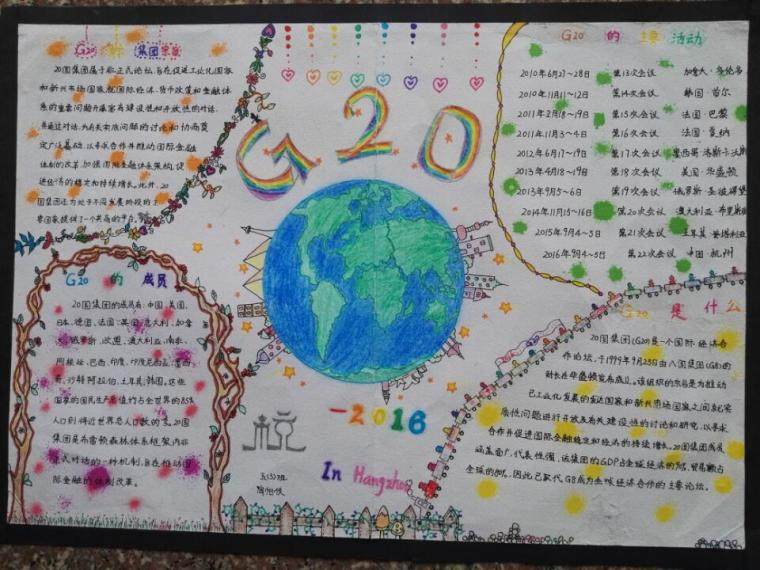 G20 集团
20国集团属于非正式论坛,旨在促进工业化国家
和新兴市场国家就国际经济、货币政策和金融体
系的重要问题开展富有建设性和开放性的对话,
并通过对话,为有关实质问题的讨论和协商奠
定广泛基础,以寻求合作并推动国际金融
体制的改革,加强国际金融体系架构,促
进经济的稳定和持续增长。此外,20
国集团还为处于不同发展阶段的主
要国家提供了一个共商的平台。
G20 的 成员
20国集团的成员有:中国、美国、
日本、德国、法国、英国、意大利、加拿
大、俄罗斯、欧盟、澳大利亚、南非、
阿根廷、巴西、印度、印度尼西亚、墨西
哥、沙特阿拉伯、土耳其、韩国。这些
国家的国民生产总值约占全世界的85%
人口则将近世界总人口数的2/3。20国
集团是布雷顿森林体系框架内非
正式对话的一种机制,旨在推动国
际金融的体制改革。
G20
-2016
杭
In Hangzhou
G20 的 主要 活动
2010年6月2~28日 第13次会议 加拿大·多伦多
2010年11月11~12日 第14次会议 韩国·首尔
2011年2月18~19日 第15次会议 法国·巴黎
2011年11月3~4日 第16次会议 法国·戛纳
2012年6月17~19日 第17次会议 墨西哥·洛斯卡沃斯
2013年4月18~19日 第18次会议 美国·华盛顿
2013年9月5~6日 第19次会议 俄罗斯·圣彼得堡
2014年11月15~16日 第20次会议 澳大利亚·布里斯班
2015年9月4~5日 第21次会议 土耳其·安塔利亚
2016年9月4~5日 第22次会议 中国·杭州
G20 是 什么
20国集团(G20)是一个国际经济合
作论坛,于1999年9月25日由八国集团(G8)的
财长在华盛顿宣布成立。该组织的宗旨是为推动
已工业化发展的发达国家和新兴市场国家之间就实
质性问题进行开放及有关建设性的讨论和研究,以寻求
合作并促进国际金融稳定和经济的持续增长。20国集团成员
涵盖面广,代表性强,该集团的GDP占全球经济的90%,贸易额占
全球的80%,因此已取代G8成为全球经济合作的主要论坛。